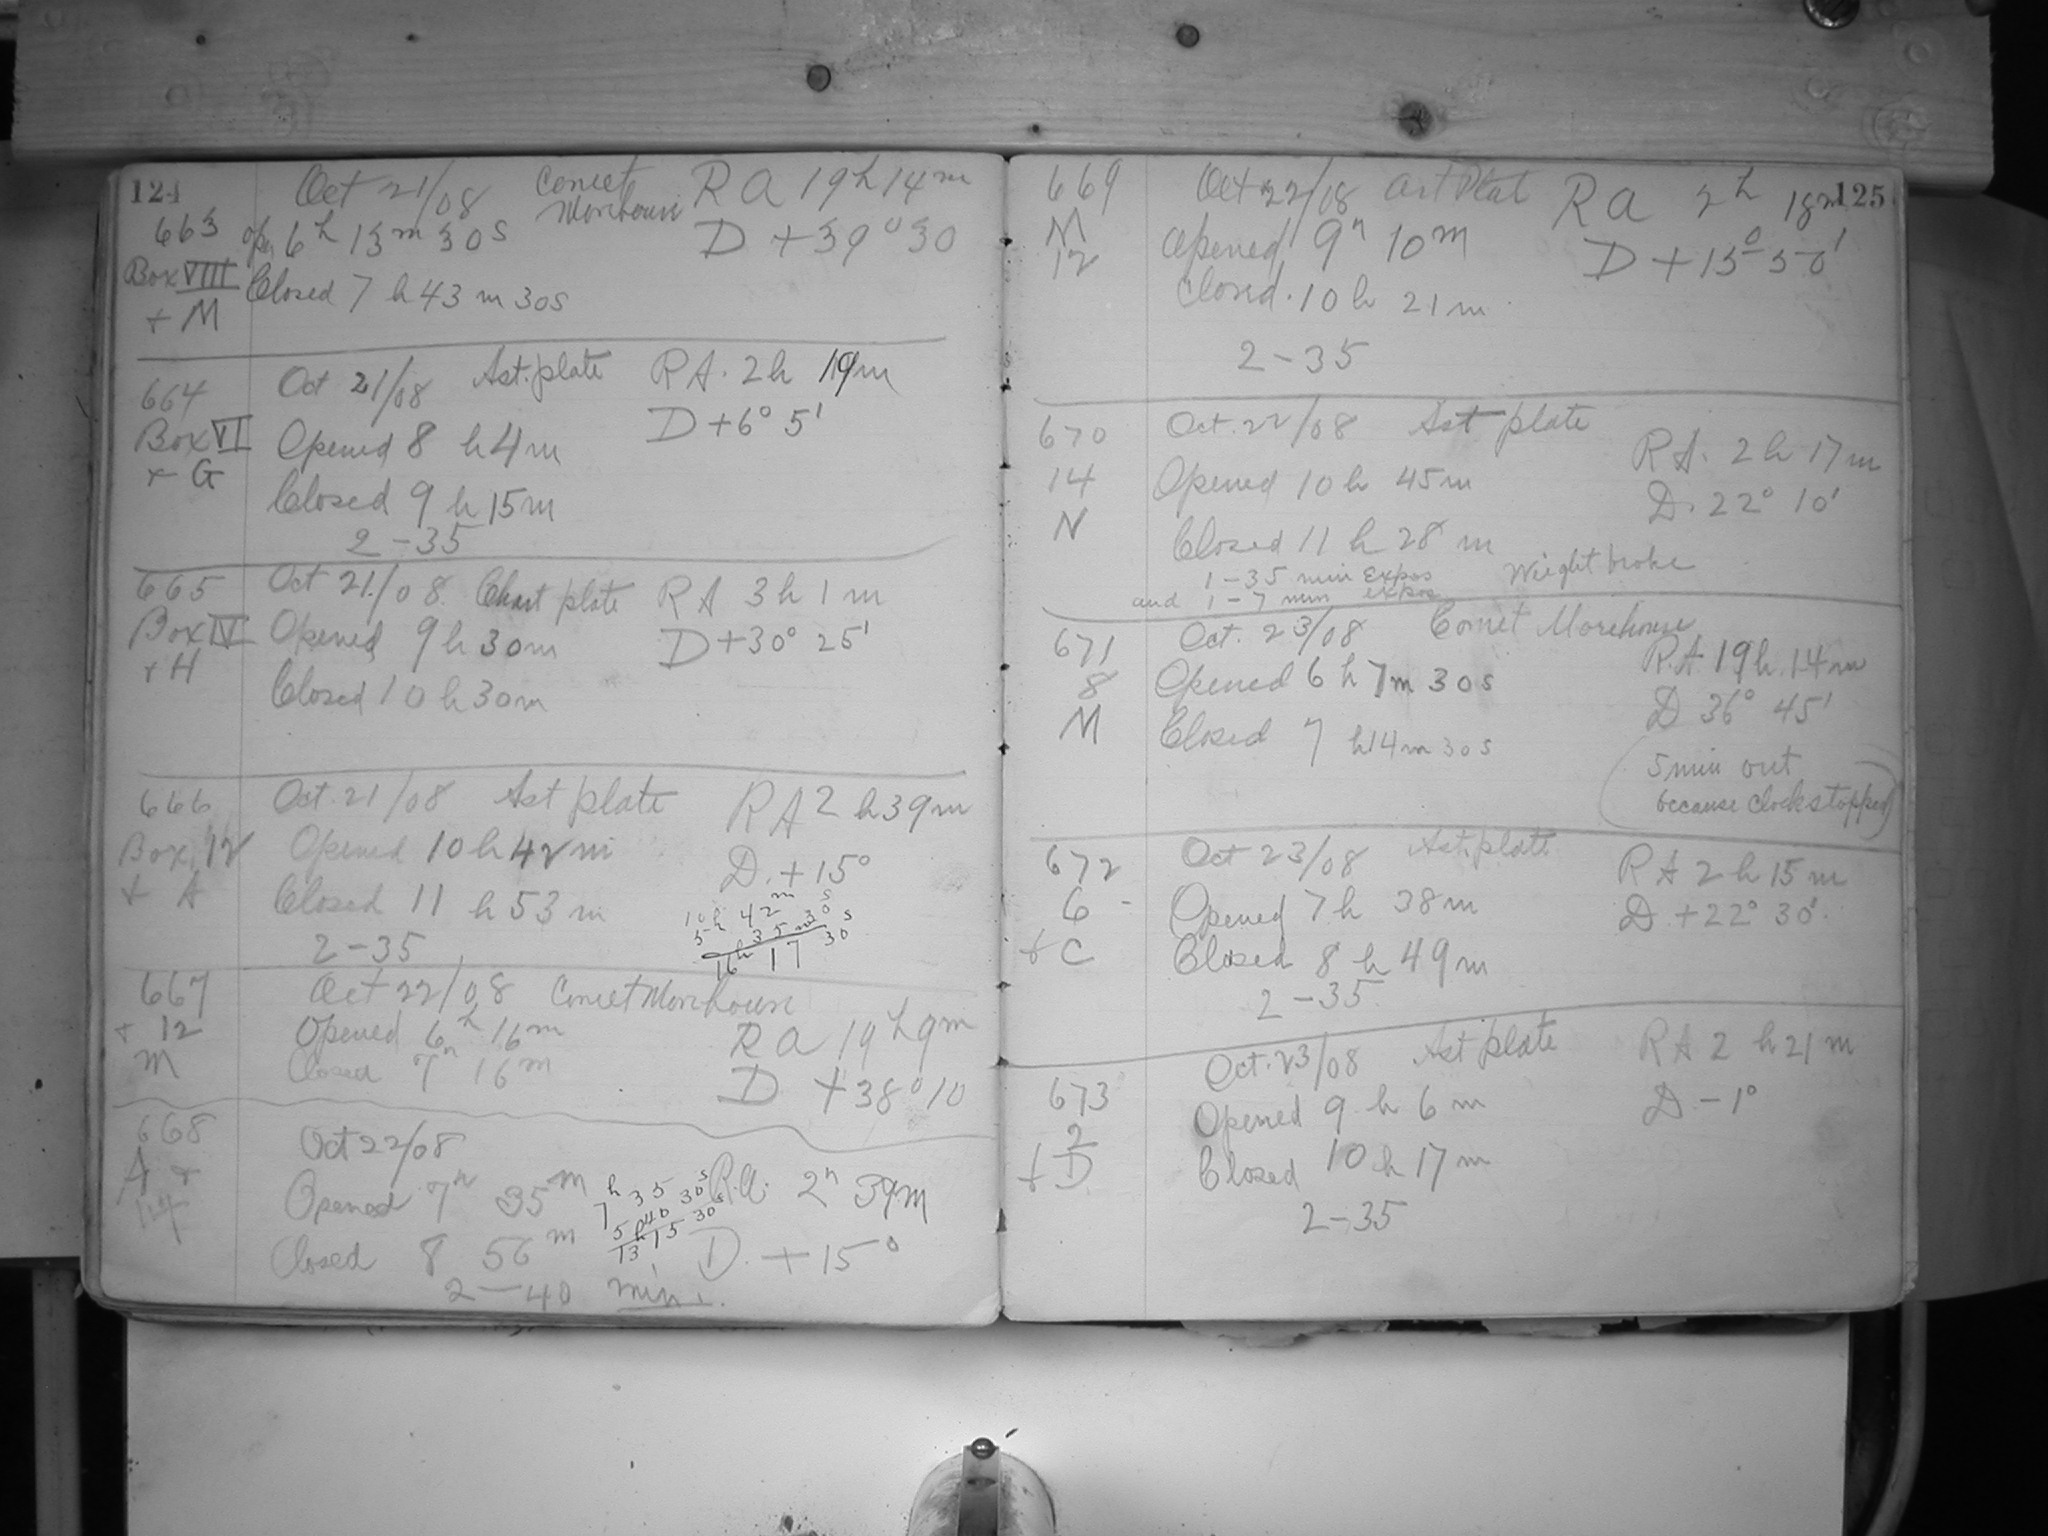 124
Oct 21/08 Comet Morehouse RA 19h 14m
663 open 6h 13m 30s D +39° 30
Box VIII Closed 7h 43m 30s
+ M
664 Oct 21/08 Ast. plate RA. 2h 19m
Box VI Opened 8h 4m D +6° 5'
+ G Closed 9h 15m
2-35
665 Oct 21/08 Chart plate RA 3h 1m
Box IV Opened 9h 30m D +30° 25'
+ H Closed 10h 30m
666 Oct. 21/08 Ast plate RA 2h 39m
Box 12 Opened 10h 42m D. +15°
+ A Closed 11h 53m
10h 42m 30s
5h 35m 30s
16h 17 30
2-35
667 Oct 22/08 Comet Morehouse
+ 12 Opened 6h 16m RA 19h 9m
M Closed 7h 16m D +38° 10
668 Oct 22/08
A + Opened 7h 35m R.a. 2h 39m
14 Closed 8 56m D. +15°
7h 35 30s
5h 40 30s
13h 15
2-40 min.
125
669 Oct 22/08 Ast Plat RA 2h 18m
M Opened 9h 10m D +15° 50'
12 Closed. 10h 21m
2-35
670 Oct. 22/08 Ast plate RA. 2h 17m
14 Opened 10h 45m D. 22° 10'
N Closed 11h 28m
1-35 min expos Weight broke
and 1-7 min expos
671 Oct. 23/08 Comet Morehouse
8 Opened 6h 7m 30s RA 19h 14m
M Closed 7h 14m 30s D 36° 45'
(5 min out
because clock stopped)
672 Oct 23/08 Ast. plate RA 2h 15m
6 - Opened 7h 38m D +22° 30'
+ C Closed 8h 49m
2-35
673 Oct. 23/08 Ast plate RA 2h 21m
2 Opened 9h 6m D. -1°
+ D Closed 10h 17m
2-35